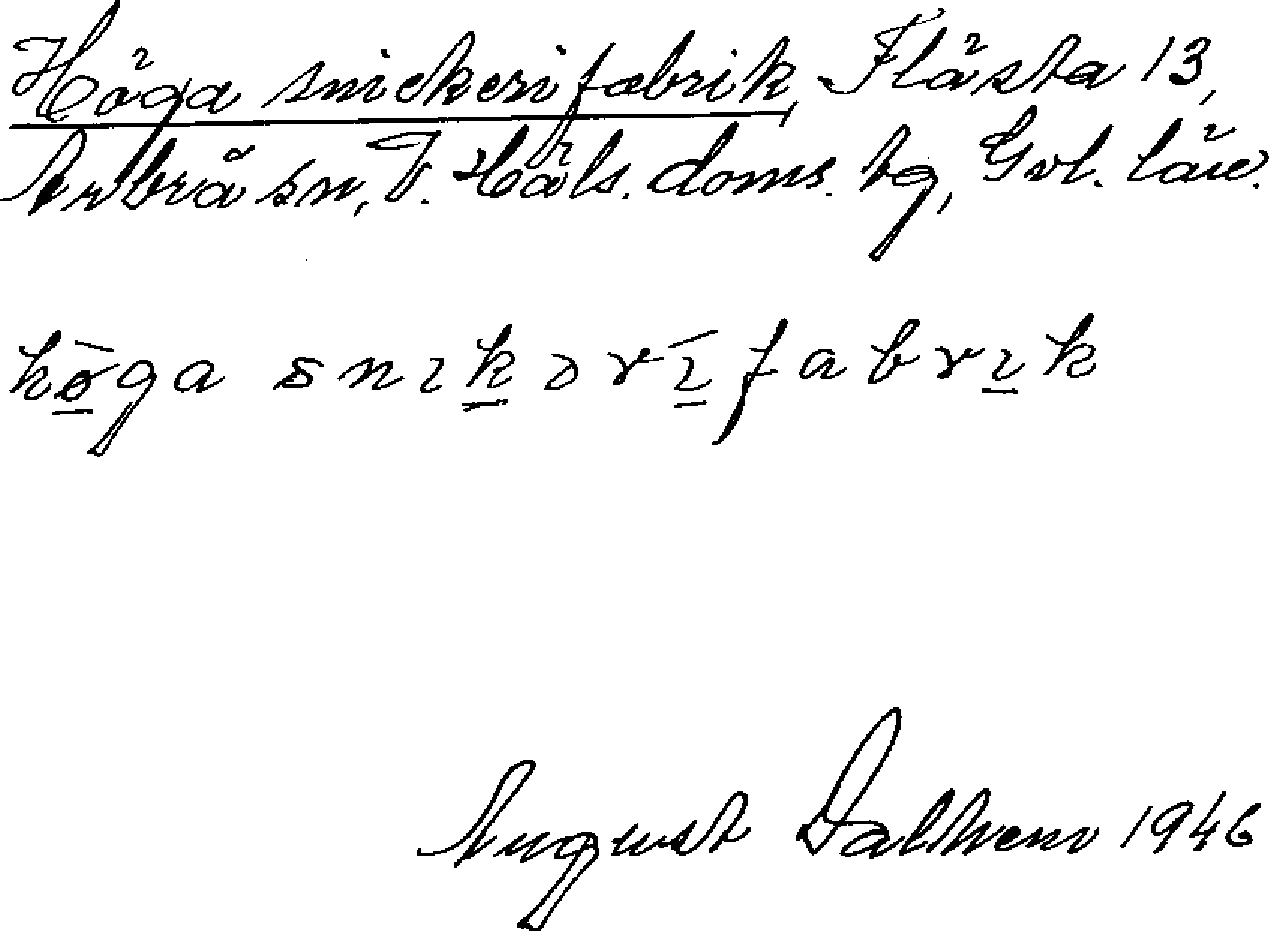 Höga snickerifabrik, Flästa 13,
Arbrå sn, V. Häls. doms. tg, Gvl. län.
höga snɩkərɩfabrɩk
August Dalhem 1946